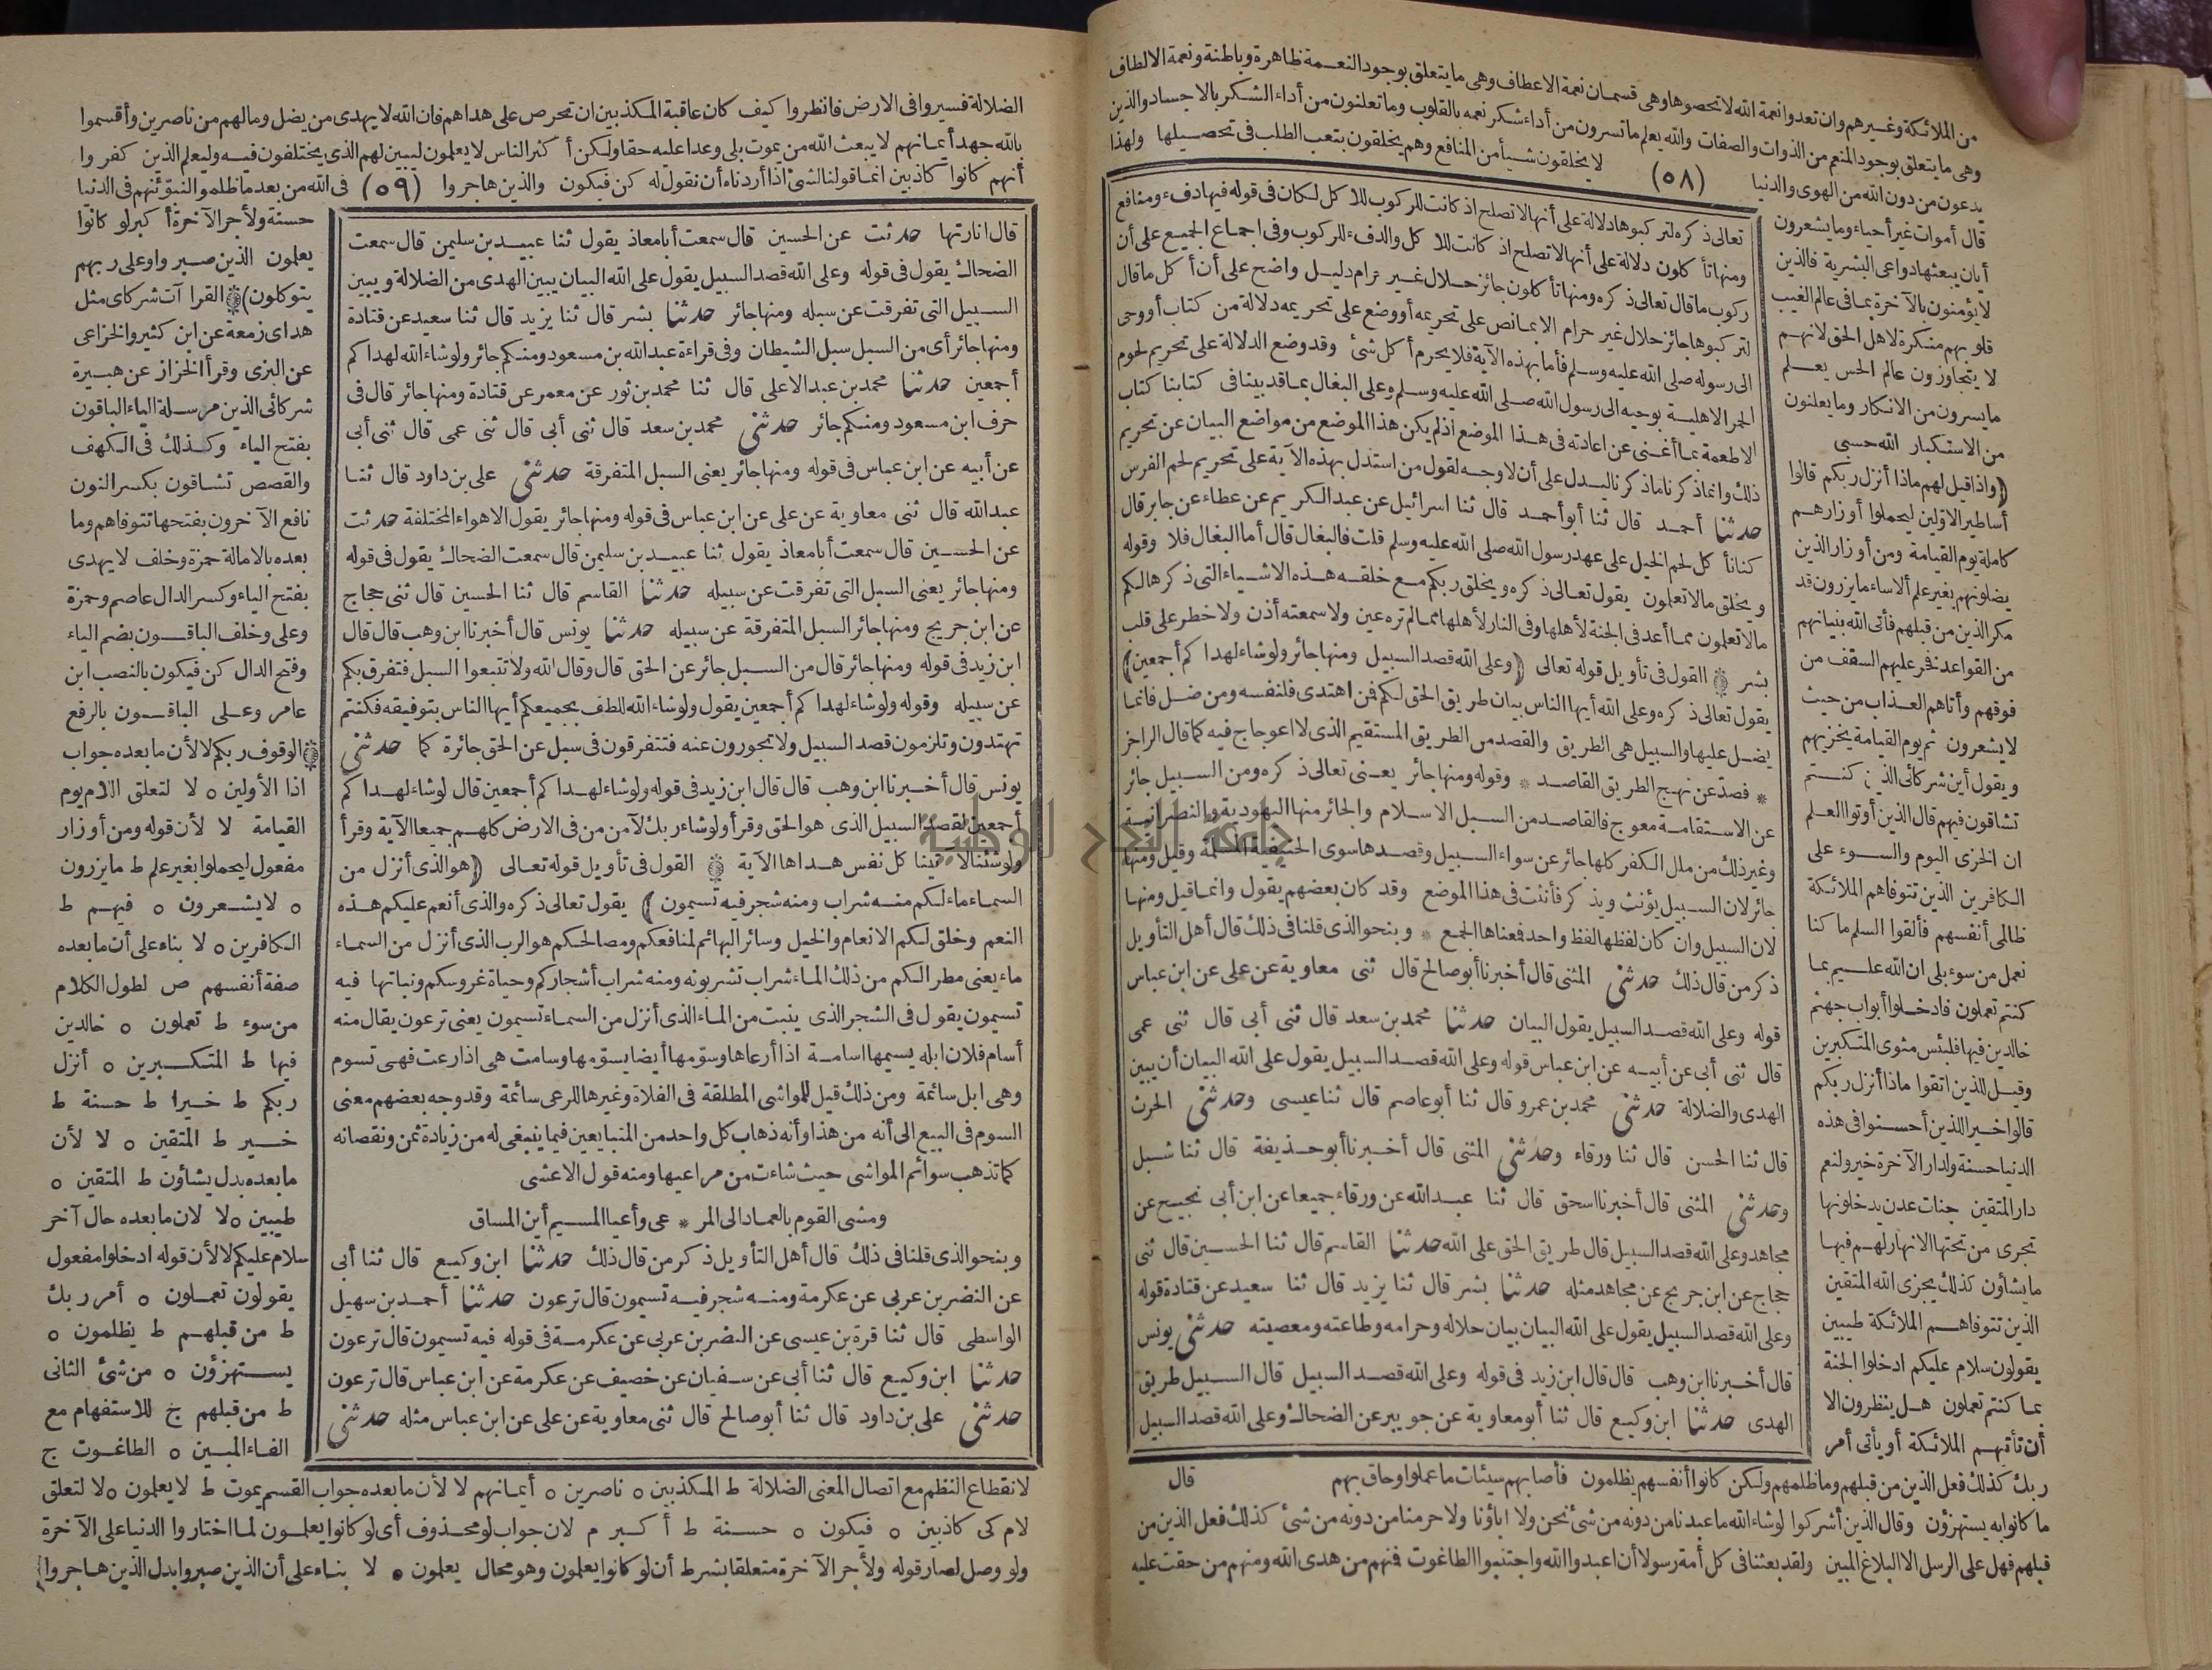 من الملائكة وغيرهم وان تعدوا نعمة الله لا تحصوها وهى قسمان نعمة الاعطاف وهى ما يتعلق بوجود النعمة ظاهرة وباطنة ونعمة الالطاف
وهى ما يتعلق بوجود المنعم من الذوات والصفات والله يعلم ما تسرون من أداء شكر نعمه بالقلوب وما تعلنون من أداء الشكر بالاجساد والذين
يدعون من دون الله من الهوى والدنيا (٥٨) لا يخلقون شيأ من المنافع وهم يخلقون بتعب الطلب فى تحصيلها ولهذا
قال أموات غير أحياء وما يشعرون
أيان يبعثها دواعى البشرية فالذين
لا يؤمنون بالآخرة بما فى عالم الغيب
قلوبهم منكرة لاهل الحق لانهم
لا يتجاوزون عالم الحس يعلم
ما يسرون من الانكار وما يعلنون
من الاستكبار الله حسبى
(واذا قيل لهم ماذا أنزل ربكم قالوا
أساطير الاولين ليحملوا أوزارهم
كاملة يوم القيامة ومن أوزار الذين
يضلونهم بغير علم ألا ساء ما يزرون قد
مكر الذين من قبلهم فأتى الله بنيانهم
من القواعد فخر عليهم السقف من
فوقهم وأتاهم العذاب من حيث
لا يشعرون ثم يوم القيامة يخزيهم
ويقول أين شركائى الذين كنتم
تشاقون فيهم قال الذين أوتوا العلم
ان الخزى اليوم والسوء على
الكافرين الذين تتوفاهم الملائكة
ظالمى أنفسهم فألقوا السلم ما كنا
نعمل من سوء بلى ان الله عليم بما
كنتم تعملون فادخلوا أبواب جهنم
خالدين فيها فلبئس مثوى المتكبرين
وقيل للذين اتقوا ماذا أنزل ربكم
قالوا خيرا للذين أحسنوا فى هذه
الدنيا حسنة ولدار الآخرة خير ولنعم
دار المتقين جنات عدن يدخلونها
تجرى من تحتها الانهار لهم فيها
ما يشاؤن كذلك يجزى الله المتقين
الذين تتوفاهم الملائكة طيبين
يقولون سلام عليكم ادخلوا الجنة
بما كنتم تعملون هل ينظرون الا
أن تأتيهم الملائكة أو يأتى أمر
تعالى ذكره لتركبوها دلالة على أنها لا تصلح اذ كانت للركوب للاكل لكان فى قوله فيها دفء ومنافع
ومنها تأكلون دلالة على أنها لا تصلح اذ كانت للاكل والدفء للركوب وفى اجماع الجميع على أن
ركوب ما قال تعالى ذكره ومنها تأكلون جائز حلال غير حرام دليل واضح على أن أكل ما قال
لتركبوها جائز حلال غير حرام الا بما نص على تحريمه أو وضع على تحريمه دلالة من كتاب أو وحى
الى رسوله صلى الله عليه وسلم فأما بهذه الآية فلا يحرم أكل شئ وقد وضع الدلالة على تحريم لحوم
الحمر الاهلية بوحيه الى رسول الله صلى الله عليه وسلم وعلى البغال بما قد بينا فى كتابنا كتاب
الاطعمة بما أغنى عن اعادته فى هذا الموضع اذ لم يكن هذا الموضع من مواضع البيان عن تحريم
ذلك وانما ذكرنا ما ذكرنا ليدل على أن لا وجه لقول من استدل بهذه الآية على تحريم لحم الفرس
حدثنا أحمد قال ثنا أبو أحمد قال ثنا اسرائيل عن عبد الكريم عن عطاء عن جابر قال
كنا نأكل لحم الخيل على عهد رسول الله صلى الله عليه وسلم قلت فالبغال قال أما البغال فلا وقوله
ويخلق ما لا تعلمون يقول تعالى ذكره ويخلق ربكم مع خلقه هذه الاشياء التى ذكرها لكم
ما لا تعلمون مما أعد فى الجنة لأهلها وفى النار لأهلها مما لم تره عين ولا سمعته أذن ولا خطر على قلب
بشر ۞ القول فى تأويل قوله تعالى (وعلى الله قصد السبيل ومنها جائر ولو شاء لهداكم أجمعين)
يقول تعالى ذكره وعلى الله أيها الناس بيان طريق الحق لكم فمن اهتدى فلنفسه ومن ضل فانما
يضل عليها والسبيل هى الطريق والقصد من الطريق المستقيم الذى لا اعوجاج فيه كما قال الراجز
* فصد عن نهج الطريق القاصد * وقوله ومنها جائر يعنى تعالى ذكره ومن السبيل جائر
عن الاستقامة معوج فالقاصد من السبل الاسلام والجائر منها اليهودية والنصرانية
وغير ذلك من ملل الكفر كلها جائر عن سواء السبيل وقصدها سوى الحنيفية المسلمة وقيل ومنها
جائر لان السبيل يؤنث ويذكر فأنثت فى هذا الموضع وقد كان بعضهم يقول وانما قيل ومنها
لان السبيل وان كان لفظها لفظ واحد فمعناها الجمع * وبنحو الذى قلنا فى ذلك قال أهل التأويل
ذكر من قال ذلك حدثنى المثنى قال أخبرنا أبو صالح قال ثنى معاوية عن على عن ابن عباس
قوله وعلى الله قصد السبيل يقول البيان حدثنا محمد بن سعد قال ثنى أبى قال ثنى عمى
قال ثنى أبى عن أبيه عن ابن عباس قوله وعلى الله قصد السبيل يقول على الله البيان أن يبين
الهدى والضلالة حدثنى محمد بن عمرو قال ثنا أبو عاصم قال ثنا عيسى وحدثنى الحرث
قال ثنا الحسن قال ثنا ورقاء وحدثنى المثنى قال أخبرنا أبو حذيفة قال ثنا شبل
وحدثنى المثنى قال أخبرنا اسحق قال ثنا عبد الله عن ورقاء جميعا عن ابن أبى نجيح عن
مجاهد وعلى الله قصد السبيل قال طريق الحق على الله حدثنا القاسم قال ثنا الحسين قال ثنى
حجاج عن ابن جريج عن مجاهد مثله حدثنا بشر قال ثنا يزيد قال ثنا سعيد عن قتادة قوله
وعلى الله قصد السبيل يقول على الله البيان بيان حلاله وحرامه وطاعته ومعصيته حدثنى يونس
قال أخبرنا ابن وهب قال قال ابن زيد فى قوله وعلى الله قصد السبيل قال السبيل طريق
الهدى حدثنا ابن وكيع قال ثنا أبو معاوية عن جويبر عن الضحاك وعلى الله قصد السبيل
قال
ربك كذلك فعل الذين من قبلهم وما ظلمهم ولكن كانوا أنفسهم يظلمون فأصابهم سيئات ما عملوا وحاق بهم
ما كانوا به يستهزؤن وقال الذين أشركوا لو شاء الله ما عبدنا من دونه من شئ نحن ولا اباؤنا ولا حرمنا من دونه من شئ كذلك فعل الذين من
قبلهم فهل على الرسل الا البلاغ المبين ولقد بعثنا فى كل أمة رسولا أن اعبدوا الله واجتنبوا الطاغوت فمنهم من هدى الله ومنهم من حقت عليه
الضلالة فسيروا فى الارض فانظروا كيف كان عاقبة المكذبين ان تحرص على هداهم فان الله لا يهدى من يضل وما لهم من ناصرين وأقسموا
بالله جهد أيمانهم لا يبعث الله من يموت بلى وعدا عليه حقا ولكن أكثر الناس لا يعلمون ليبين لهم الذى يختلفون فيه وليعلم الذين كفروا
أنهم كانوا كاذبين انما قولنا لشئ اذا أردناه أن نقول له كن فيكون والذين هاجروا (٥٩) فى الله من بعد ما ظلموا لنبوئنهم فى الدنيا
قال انارتها حدثت عن الحسين قال سمعت أبا معاذ يقول ثنا عبيد بن سليمن قال سمعت
الضحاك يقول فى قوله وعلى الله قصد السبيل يقول على الله البيان يبين الهدى من الضلالة ويبين
السبيل التى تفرقت عن سبله ومنها جائر حدثنا بشر قال ثنا يزيد قال ثنا سعيد عن قتادة
ومنها جائر أى من السبل سبل الشيطان وفى قراءة عبد الله بن مسعود ومنكم جائر ولو شاء الله لهداكم
أجمعين حدثنا محمد بن عبد الاعلى قال ثنا محمد بن ثور عن معمر عن قتادة ومنها جائر قال فى
حرف ابن مسعود ومنكم جائر حدثنى محمد بن سعد قال ثنى أبى قال ثنى عمى قال ثنى أبى
عن أبيه عن ابن عباس فى قوله ومنها جائر يعنى السبل المتفرقة حدثنى على بن داود قال ثنا
عبد الله قال ثنى معاوية عن على عن ابن عباس فى قوله ومنها جائر يقول الاهواء المختلفة حدثت
عن الحسين قال سمعت أبا معاذ يقول ثنا عبيد بن سليمن قال سمعت الضحاك يقول فى قوله
ومنها جائر يعنى السبل التى تفرقت عن سبيله حدثنا القاسم قال ثنا الحسين قال ثنى حجاج
عن ابن جريج ومنها جائر السبل المتفرقة عن سبيله حدثنا يونس قال أخبرنا ابن وهب قال قال
ابن زيد فى قوله ومنها جائر قال من السبل جائر عن الحق قال وقال الله ولا تتبعوا السبل فتفرق بكم
عن سبيله وقوله ولو شاء لهداكم أجمعين يقول ولو شاء الله للطف بجميعكم أيها الناس بتوفيقه فكنتم
تهتدون وتلزمون قصد السبيل ولا تجورون عنه فتتفرقون فى سبل عن الحق جائرة كما حدثنى
يونس قال أخبرنا ابن وهب قال قال ابن زيد فى قوله ولو شاء لهداكم أجمعين قال لو شاء لهداكم
أجمعين لقصد السبيل الذى هو الحق وقرأ ولو شاء ربك لآمن من فى الارض كلهم جميعا الآية وقرأ
ولو شئنا لآتينا كل نفس هداها الآية ۞ القول فى تأويل قوله تعالى (هو الذى أنزل من
السماء ماء لكم منه شراب ومنه شجر فيه تسيمون) يقول تعالى ذكره والذى أنعم عليكم هذه
النعم وخلق لكم الانعام والخيل وسائر البهائم لمنافعكم ومصالحكم هو الرب الذى أنزل من السماء
ماء يعنى مطرا لكم من ذلك الماء شراب تشربونه ومنه شراب أشجاركم وحياة غروسكم ونباتها فيه
تسيمون يقول فى الشجر الذى ينبت من الماء الذى أنزل من السماء تسيمون يعنى ترعون يقال منه
أسام فلان ابله يسيمها اسامة اذا أرعاها وسومها أيضا يسومها وسامت هى اذا رعت فهى تسوم
وهى ابل سائمة ومن ذلك قيل للمواشى المطلقة فى الفلاة وغيرها للرعى سائمة وقد وجه بعضهم معنى
السوم فى البيع الى أنه من هذا وأنه ذهاب كل واحد من المتبايعين فيما ينبغى له من زيادة ثمن ونقصانه
كما تذهب سوائم المواشى حيث شاءت من مراعيها ومنه قول الاعشى
ومشى القوم بالعماد الى المر * عى وأعيا المسيم أين المساق
وبنحو الذى قلنا فى ذلك قال أهل التأويل ذكر من قال ذلك حدثنا ابن وكيع قال ثنا أبى
عن النضر بن عربى عن عكرمة ومنه شجر فيه تسيمون قال ترعون حدثنا أحمد بن سهيل
الواسطى قال ثنا قرة بن عيسى عن النضر بن عربى عن عكرمة فى قوله فيه تسيمون قال ترعون
حدثنا ابن وكيع قال ثنا أبى عن سفيان عن خصيف عن عكرمة عن ابن عباس قال ترعون
حدثنى على بن داود قال ثنا أبو صالح قال ثنى معاوية عن على عن ابن عباس مثله حدثنى
حسنة ولأجر الآخرة أكبر لو كانوا
يعلمون الذين صبروا وعلى ربهم
يتوكلون) ۞ القراآت شركاى مثل
هداى زمعة عن ابن كثير والخزاعى
عن البزى وقرأ الخزاز عن هبيرة
شركائى الذين مرسلة الياء الباقون
بفتح الياء وكذلك فى الكهف
والقصص تشاقون بكسر النون
نافع الآخرون بفتحها تتوفاهم وما
بعده بالامالة حمزة وخلف لا يهدى
بفتح الياء وكسر الدال عاصم وحمزة
وعلى وخلف الباقون بضم الياء
وفتح الدال كن فيكون بالنصب ابن
عامر وعلى الباقون بالرفع
۞ الوقوف ربكم لا لأن ما بعده جواب
اذا الأولين ه لا لتعلق اللام يوم
القيامة لا لأن قوله ومن أوزار
مفعول ليحملوا بغير علم ط ما يزرون
ه لا يشعرون ه فيهم ط
الكافرين ه لا بناء على أن ما بعده
صفة أنفسهم ص لطول الكلام
من سوء ط تعملون ه خالدين
فيها ط المتكبرين ه أنزل
ربكم ط خيرا ط حسنة ط
خير ط المتقين ه لا لأن
ما بعده بدل يشاؤن ط المتقين ه
طيبين ه لا لان ما بعده حال آخر
سلام عليكم لا لأن قوله ادخلوا مفعول
يقولون تعملون ه أمر ربك
ط من قبلهم ط يظلمون ه
يستهزؤن ه من شئ الثانى
ط من قبلهم ج للاستفهام مع
الفاء المبين ه الطاغوت ج
لانقطاع النظم مع اتصال المعنى الضلالة ط المكذبين ه ناصرين ه أيمانهم لا لأن ما بعده جواب القسم يموت ط لا يعلمون ه لا لتعلق
لام كى كاذبين ه فيكون ه حسنة ط أكبر م لان جواب لو محذوف أى لو كانوا يعلمون لما اختاروا الدنيا على الآخرة
ولو وصل لصار قوله ولأجر الآخرة متعلقا بشرط أن لو كانوا يعلمون وهو محال يعلمون ه لا بناء على أن الذين صبروا بدل الذين هاجروا
جامعة النجاح الوطنية